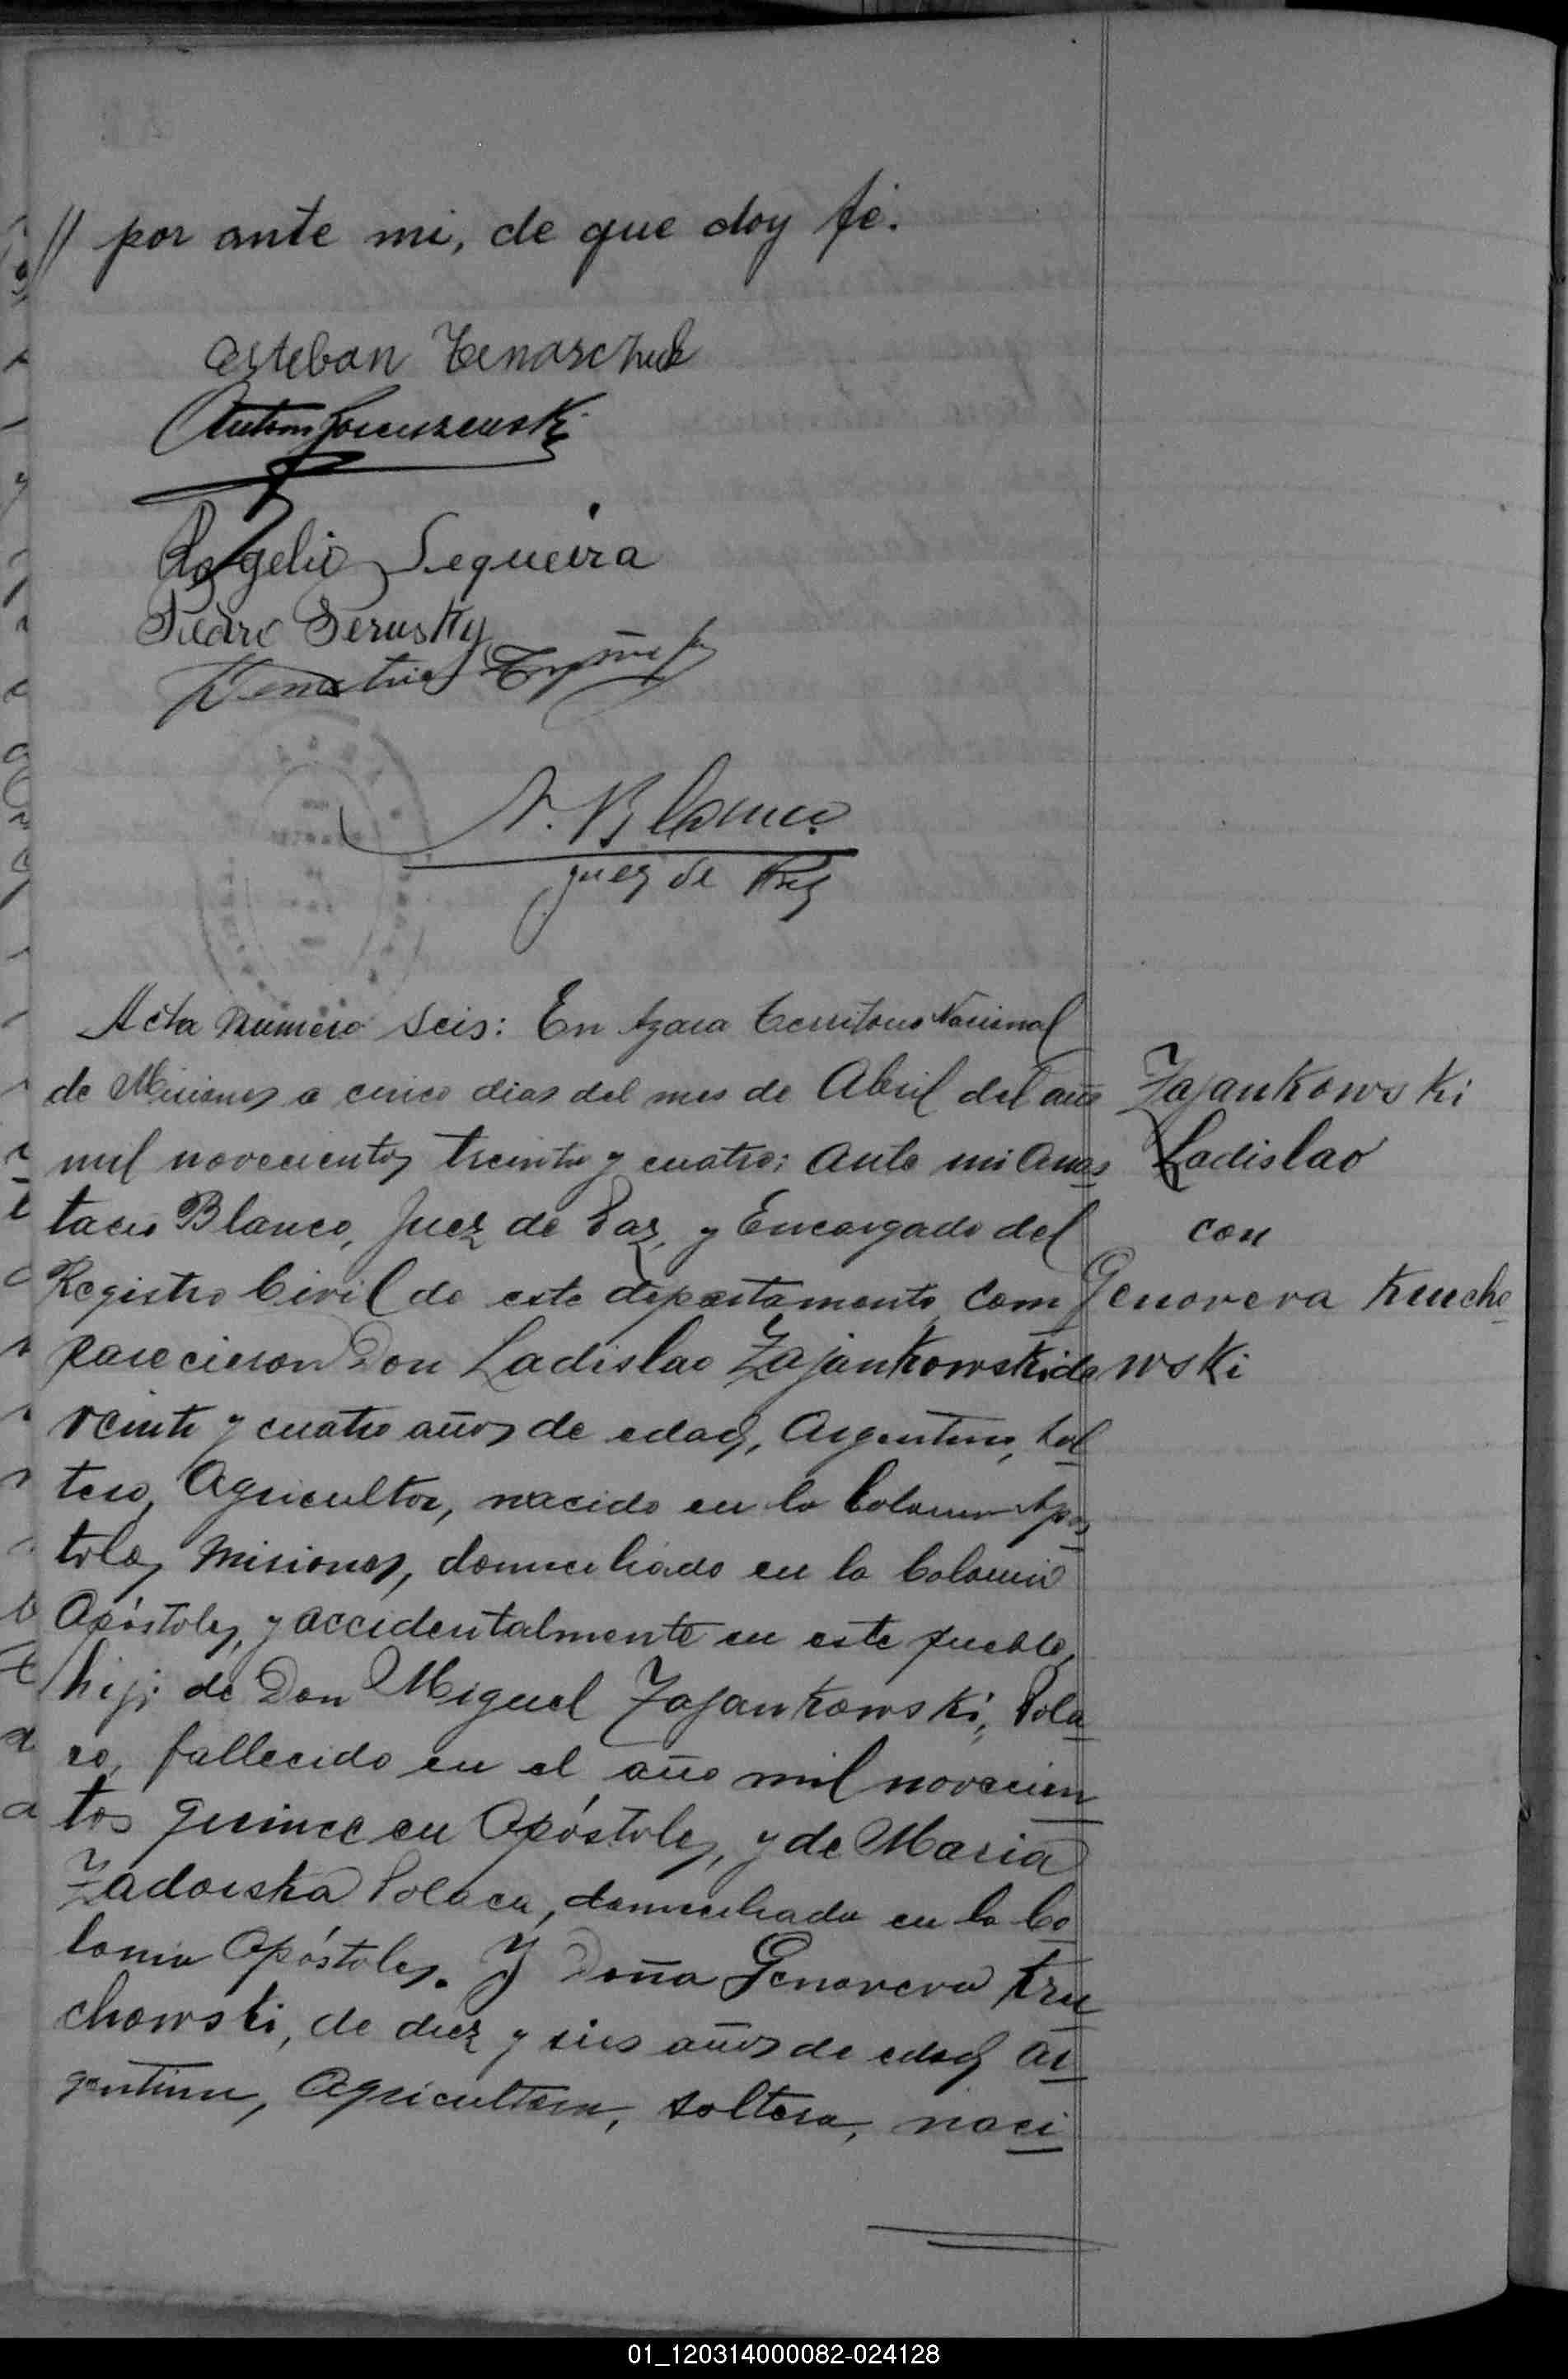 // por ante mi, de que doy fé.
Esteban
Antonio
Rogelio Sequeira
Pedro Serusky
Demetrio
A. Blanco
Juez de Paz
Acta numero seis: En Azara territorio Nacional
de Misiones a cinco dias del mes de Abril del año
mil novecientos treinta y cuatro; ante mi Anas
tacio Blanco, Juez de Paz, y Encargado del
Registro Civil de este departamento, com
parecieron Don Ladislao Zajankowski de
veinte y cuatro años de edad, Argentino, sol
tero, Agricultor, nacido en la Colonia Apos
toles Misiones, domiciliado en la Colonia
Apóstoles, y accidentalmente en este pueblo,
hijo de Don Miguel Zajankowski, Pola
co, fallecido en el año mil novecien
tos quince en Apóstoles, y de Maria
Zadorska Polaca, domiciliada en la Co
lonia Apóstoles. Y Doña Genoveva Kru
chowski, de diez y seis años de edad Ar
gentina, Agricultora, soltera, naci
Zajankowski
Ladislao
con
Genoveva Krucho
wski
01_120314000082-024128